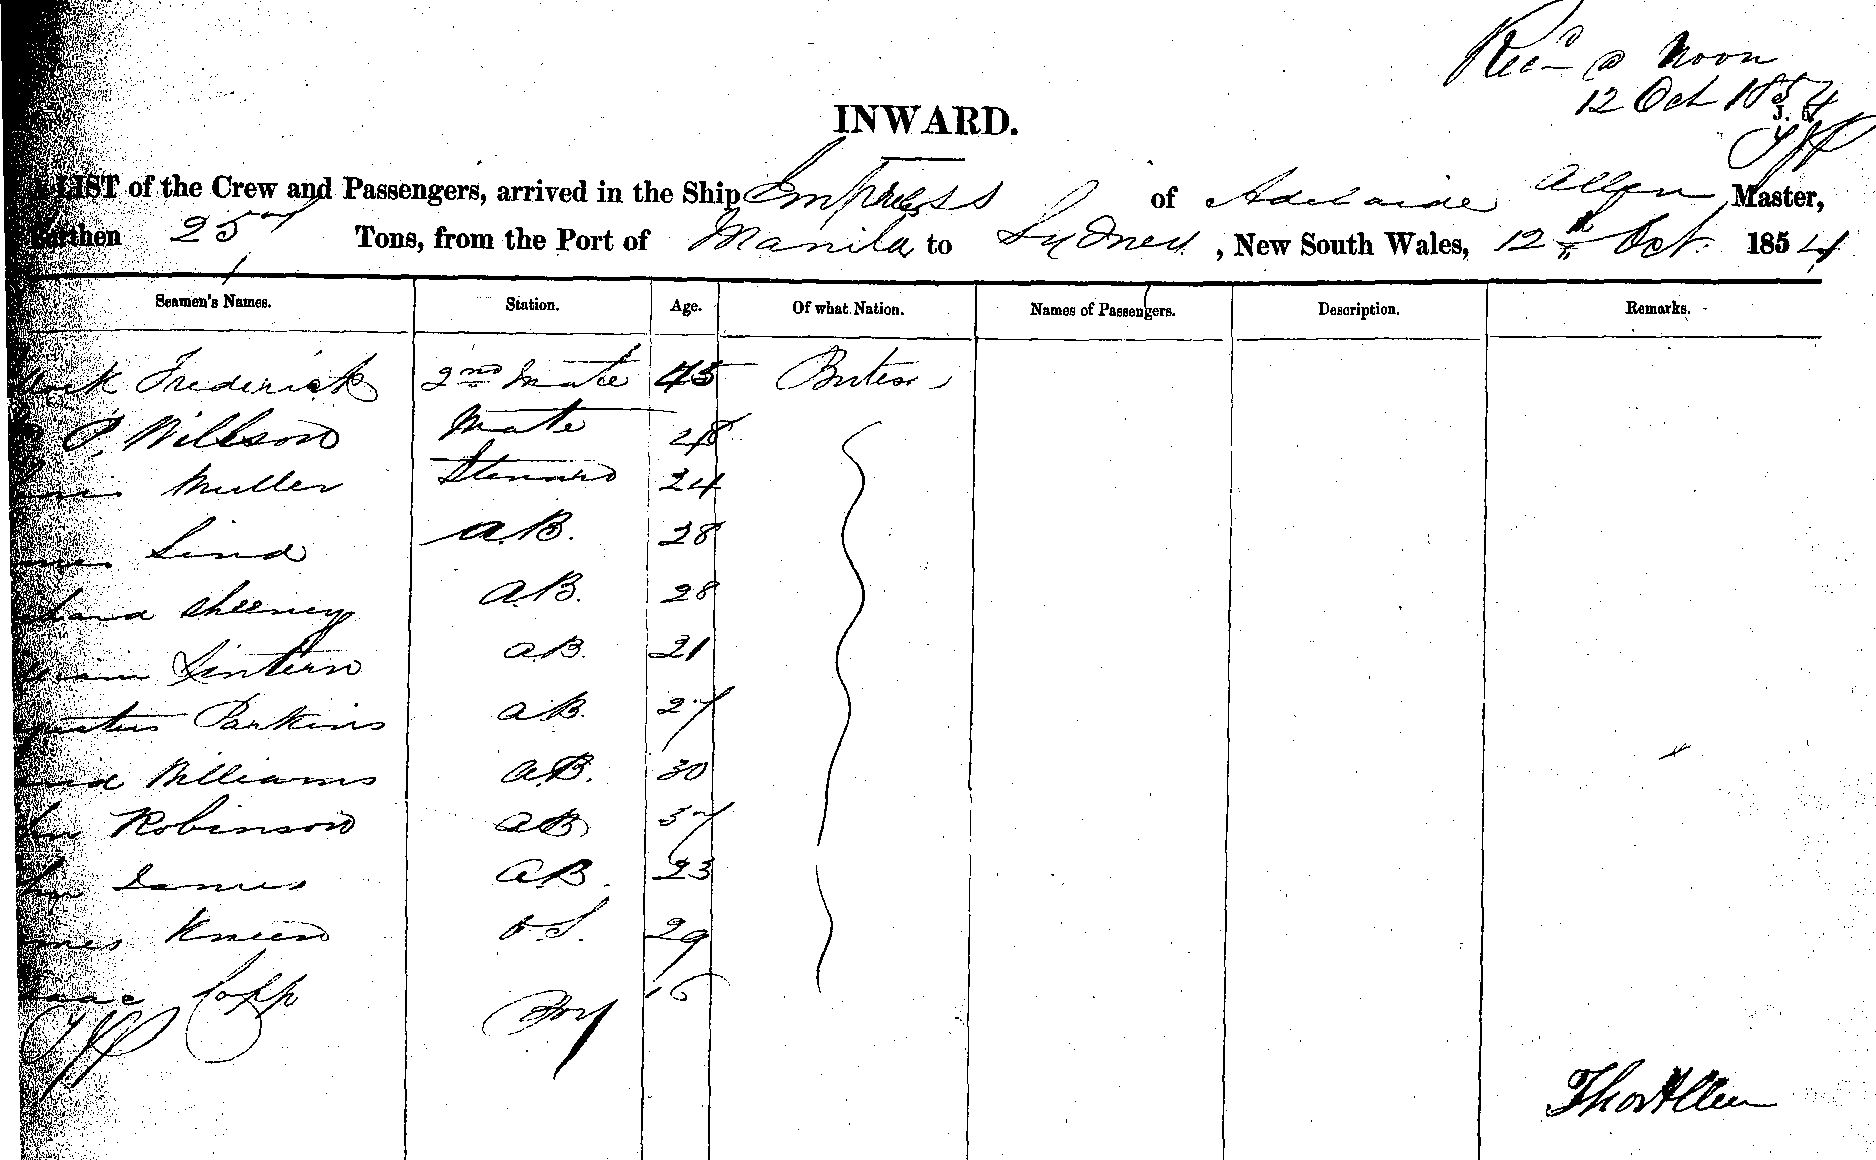 Recd @ Noon
12 Oct 1854
INWARD.
LIST of the Crew and Passengers, arrived in the Ship Empress of Adelaide Allen Master,
Tons, from the Port of Manila to Sydney, New South Wales, 12th Oct. 1854
Seamen's Names. Station. Age. Of what Nation. Names of Passengers. Description. Remarks.
Frederick 2nd Mate 45 British
P. Willson Mate 28
Muller Steward 24
Lind A.B. 28
Sheeney A.B. 28
Sintern A.B. 21
Parkins A.B. 27
Williams A.B. 30
Robinson A.B. 37
James A.B. 23
Kneen O.S. 29
Copp Boy 16
Thos Allen